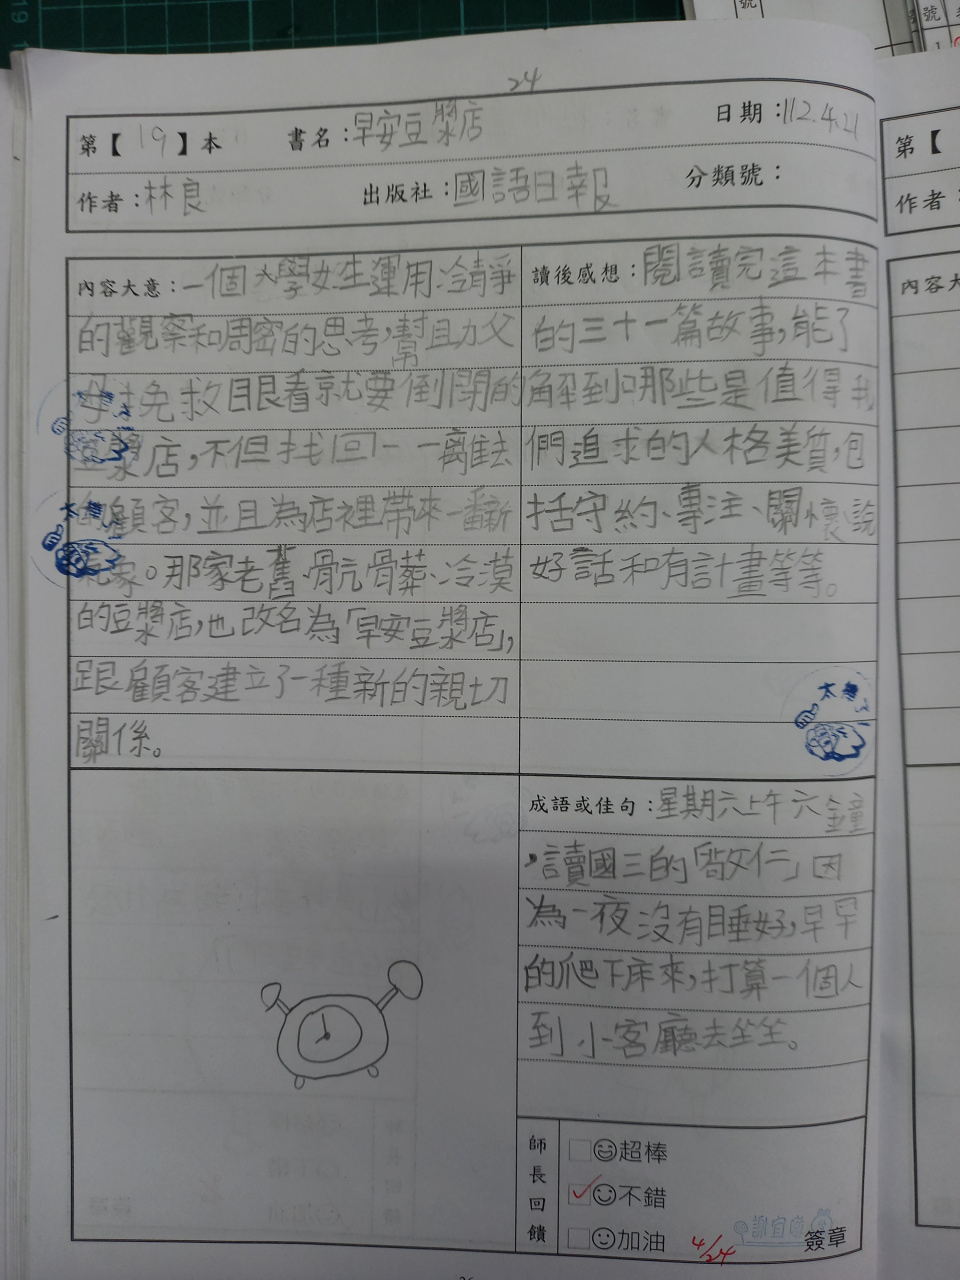 24
第【19】本 書名：早安豆漿店 日期：112.4.21
作者：林良 出版社：國語日報 分類號：
內容大意：一個大學女生運用冷靜
的觀察和周密的思考，幫助父
母挽救眼看就要倒閉的
豆漿店，不但找回一一離去
的顧客，並且為店裡帶來一番新
氣象。那家老舊、骯髒、冷漠
的豆漿店，也改名為「早安豆漿店」，
跟顧客建立了一種新的親切
關係。
讀後感想：閱讀完這本書
的三十一篇故事，能了
解到哪些是值得我
們追求的人格美質，包
括守約、專注、關懷、說
好話和有計畫等等。
太棒
太棒
太棒
成語或佳句：星期六上午六鐘
，讀國三的「啟仁」因
為一夜沒有睡好，早早
的爬下床來，打算一個人
到小客廳去坐坐。
師長回饋
超棒
不錯
加油
4/24
簽章
26
第【
作者：
內容大